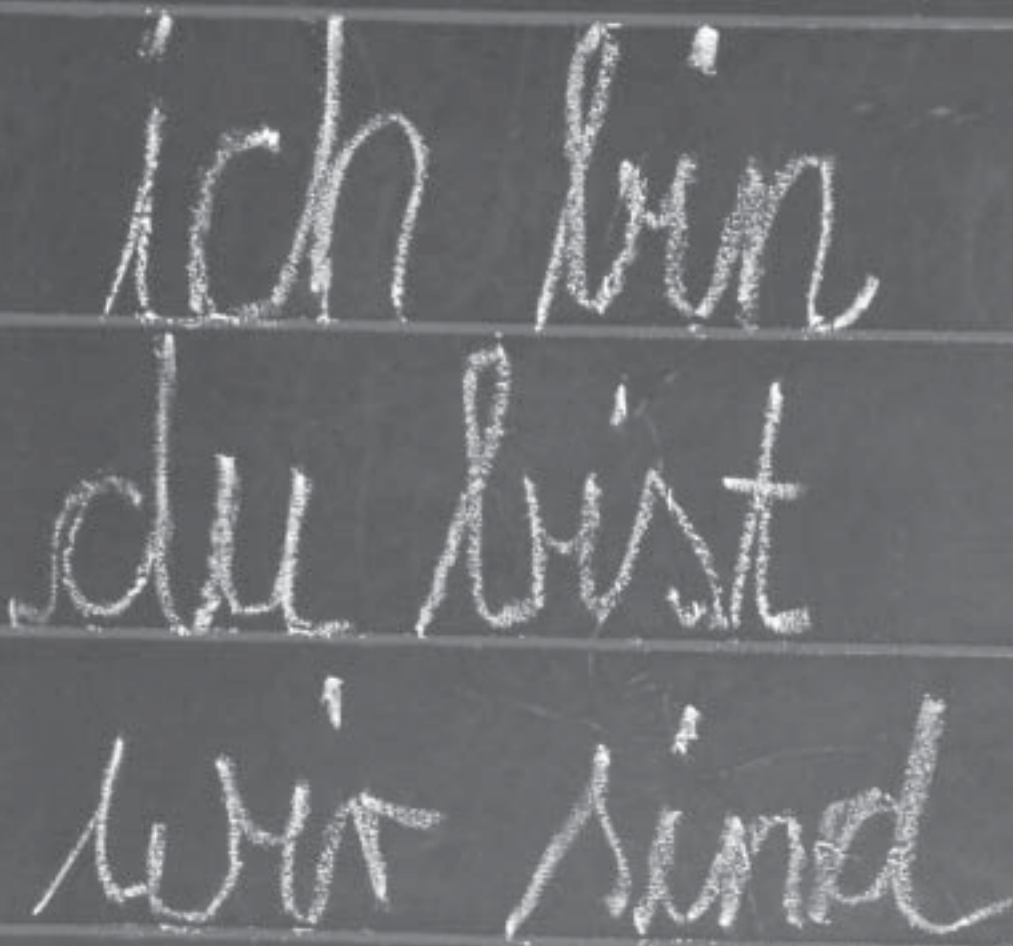 ich bin
du bist
wir sind